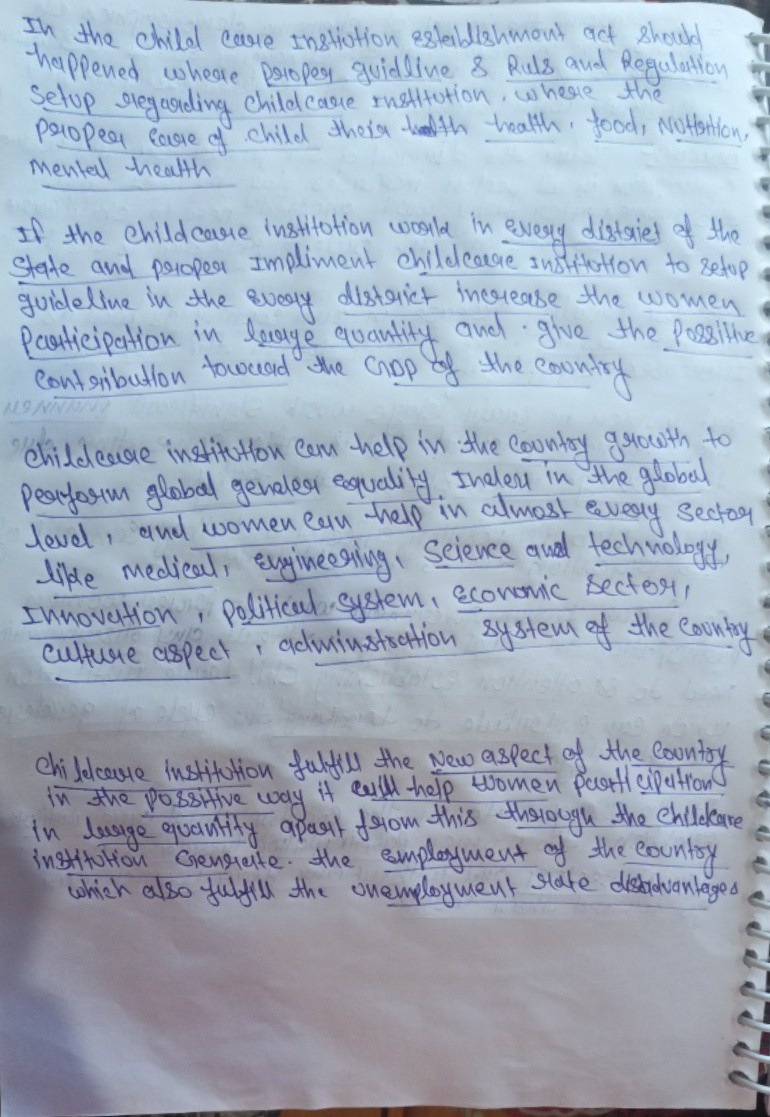 In the child care Instiution establishment act should
happened where proper guidline & Ruls and Regulation
Setup regarding childcare institution. where the
proper care of child their health health, food, Nutrition,
mental health
If the childcare institution world in every district of the
State and proper Impliment childcare institution to setup
guideline in the every district increase the women
Participation in large quantity and give the Possitive
contribution toward the GDP of the country
childcare institution can help in the country growth to
perform global gender equality Index in the global
level, and women can help in almost every sector
like medical, engineering, science and technology,
Innovation, political system, economic sector,
culture aspect, adminstration system of the country
childcare institution fulfill the New aspect of the country
in the possitive way it will help women participation
in large quantity apart from this through the childcare
institution Generate the employment of the country
which also fulfill the unemployment rate disadvantages